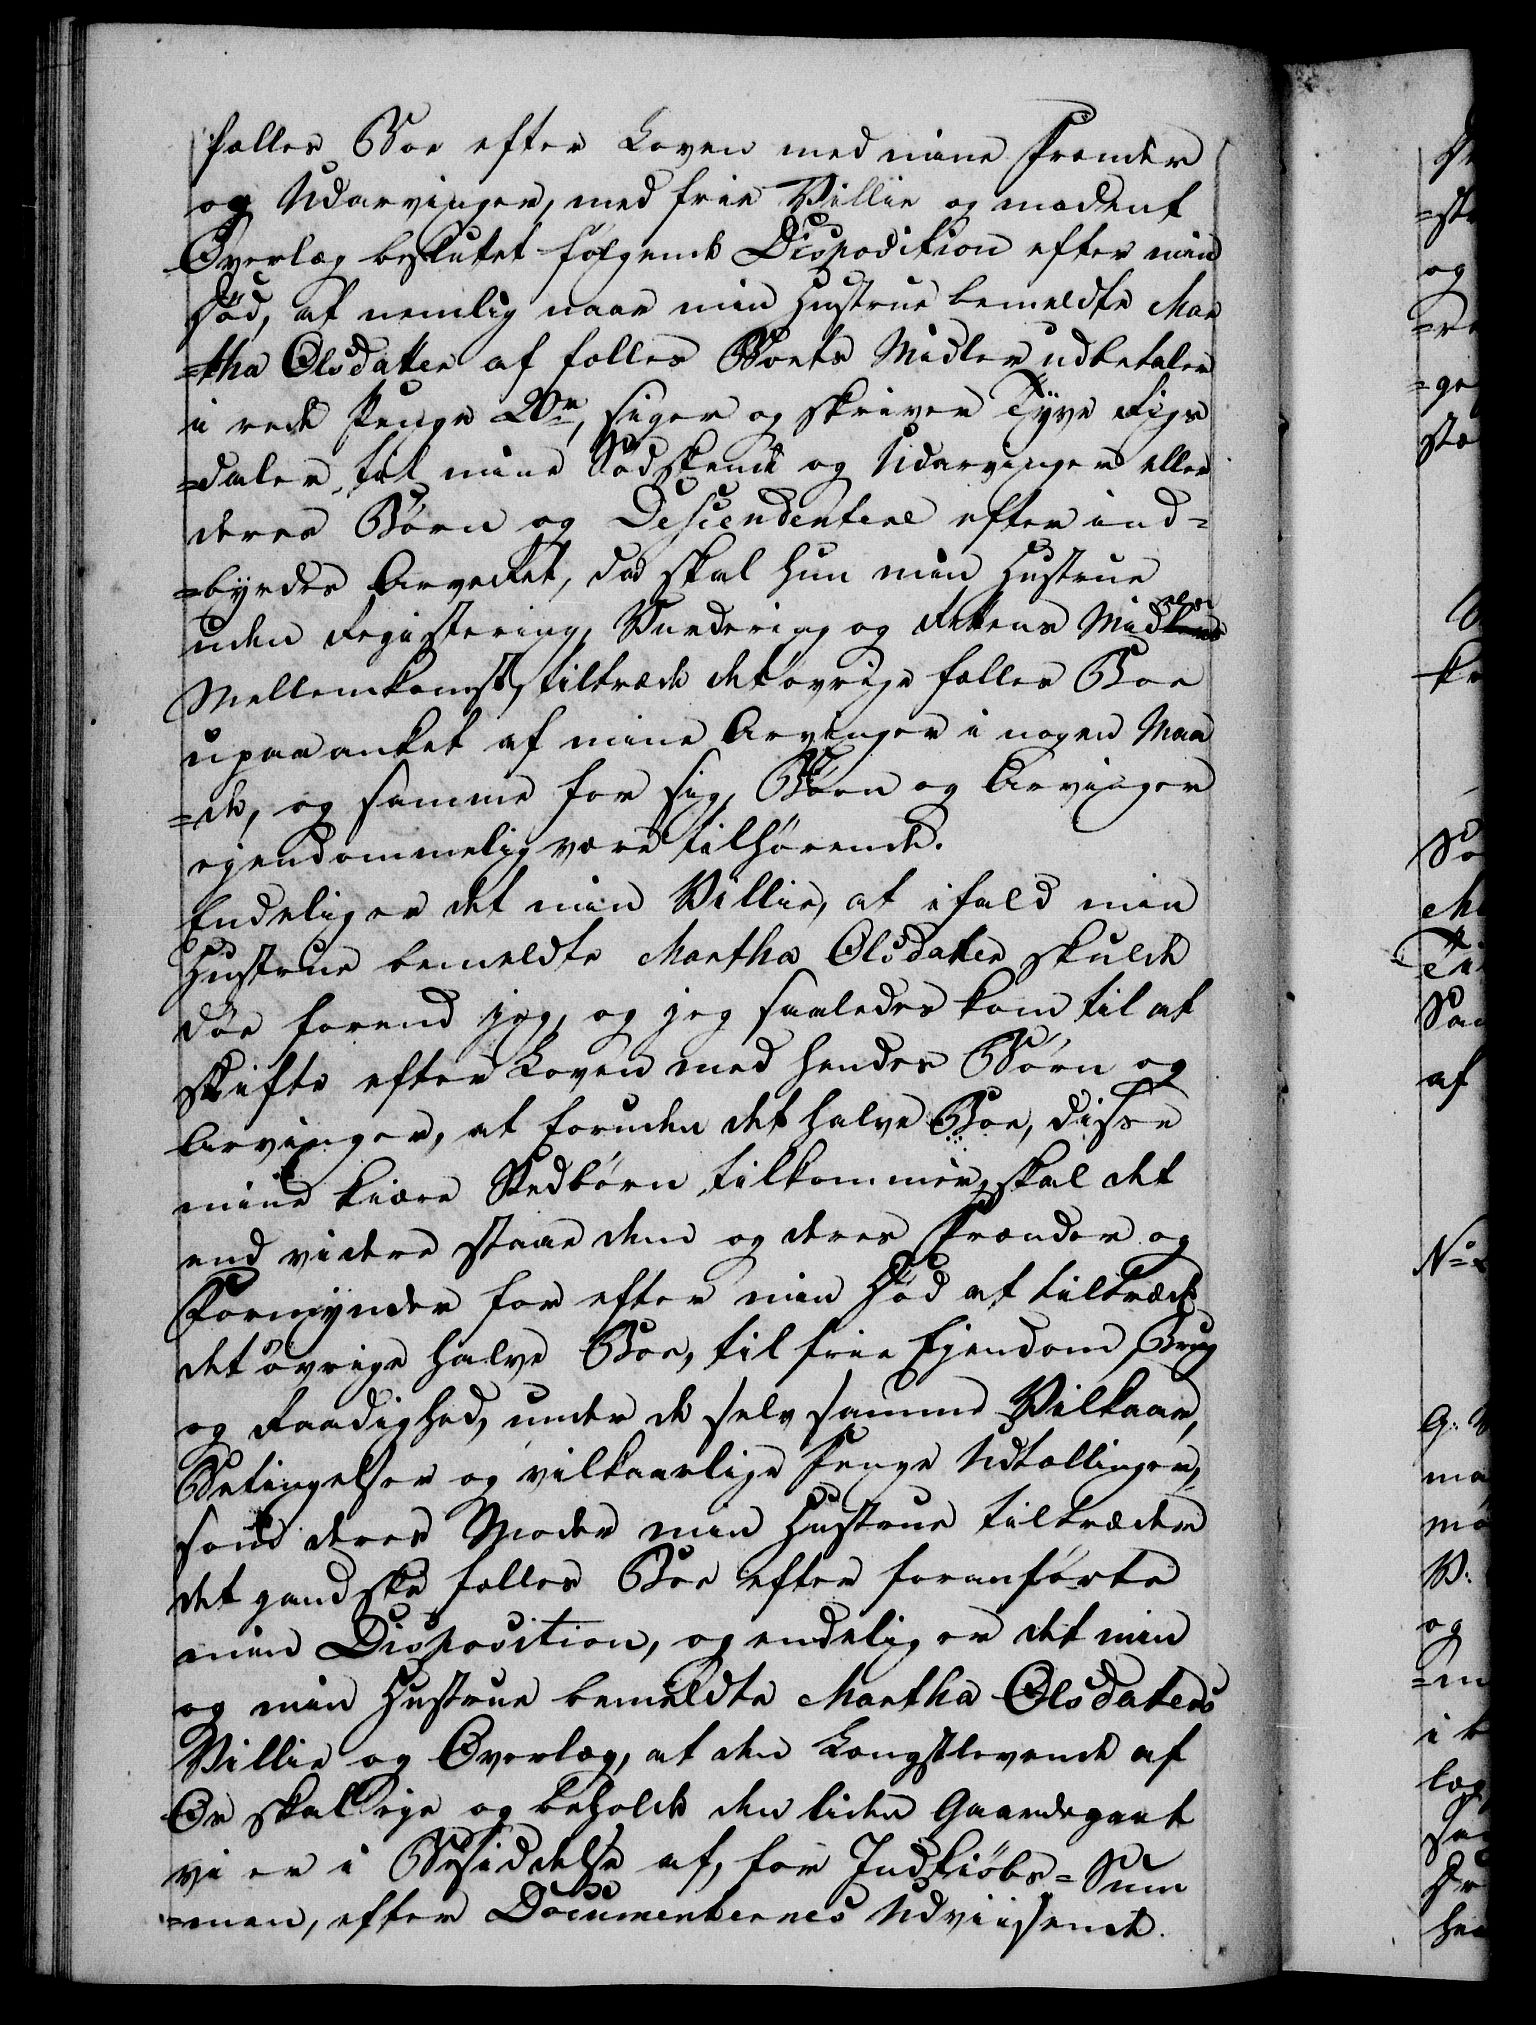 fælles Boe efter Loven med mine Frender
og Udarvinger, med frie Villie og modent
Overlæg besluttet følgende Disposition efter min
Død, at nemlig naar min Hustrue bemeldte Mar
=tha Olsdatter af fælles Boets Midler udbetaler
i rede Penge 20 rd, siger og skriver Tÿve Rigs
=daler til mine Sødskende og Udarvinger eller
deres Børn og Descendentere efter ind=
=byrdes Arveret, da skal hun min Hustrue
uden Registering, Vurdering og Rettens Mid
Mellemkomst, tiltræde det øvrige fælles Boe
upaaanket af mine Arvinger i nogen Maa
=de, og samme for sig, Børn og Arvinger
ejendommelig være tilhørende.
Endelig er det min Villie, at ifald min
Hustrue bemeldte Martha Olsdatter skulde
døe forend jeg, og jeg saaledes kom til at
skifte efter Loven med hendes Børn og
Arvinger, at foruden det halve Boe, disse
mine kiære Stedbørn tilkommer, skal det
end videre staae dem og deres Frænder og
Formynder for efter min Død at tiltræde
det øvrige halve Boe, til frie Ejendom, Brug
og Raadighed, under de selv samme Vilkaar,
Betingelser og vilkaarlige Penge Udtællinger,
som deres Moder min Hustrue tiltræder
det gandske fælles Boe efter foranførte
min Disposition, og endelig er det min
og min Hustrue bemeldte Martha Olsdatters
Villie og Overlæg, at den Længstlevende af
Os skal eje og beholde den liden Gaardepart
vi er i Besiddelse af, for Indkiøbs=Sum
=men, efter Documenternes Udviisende.